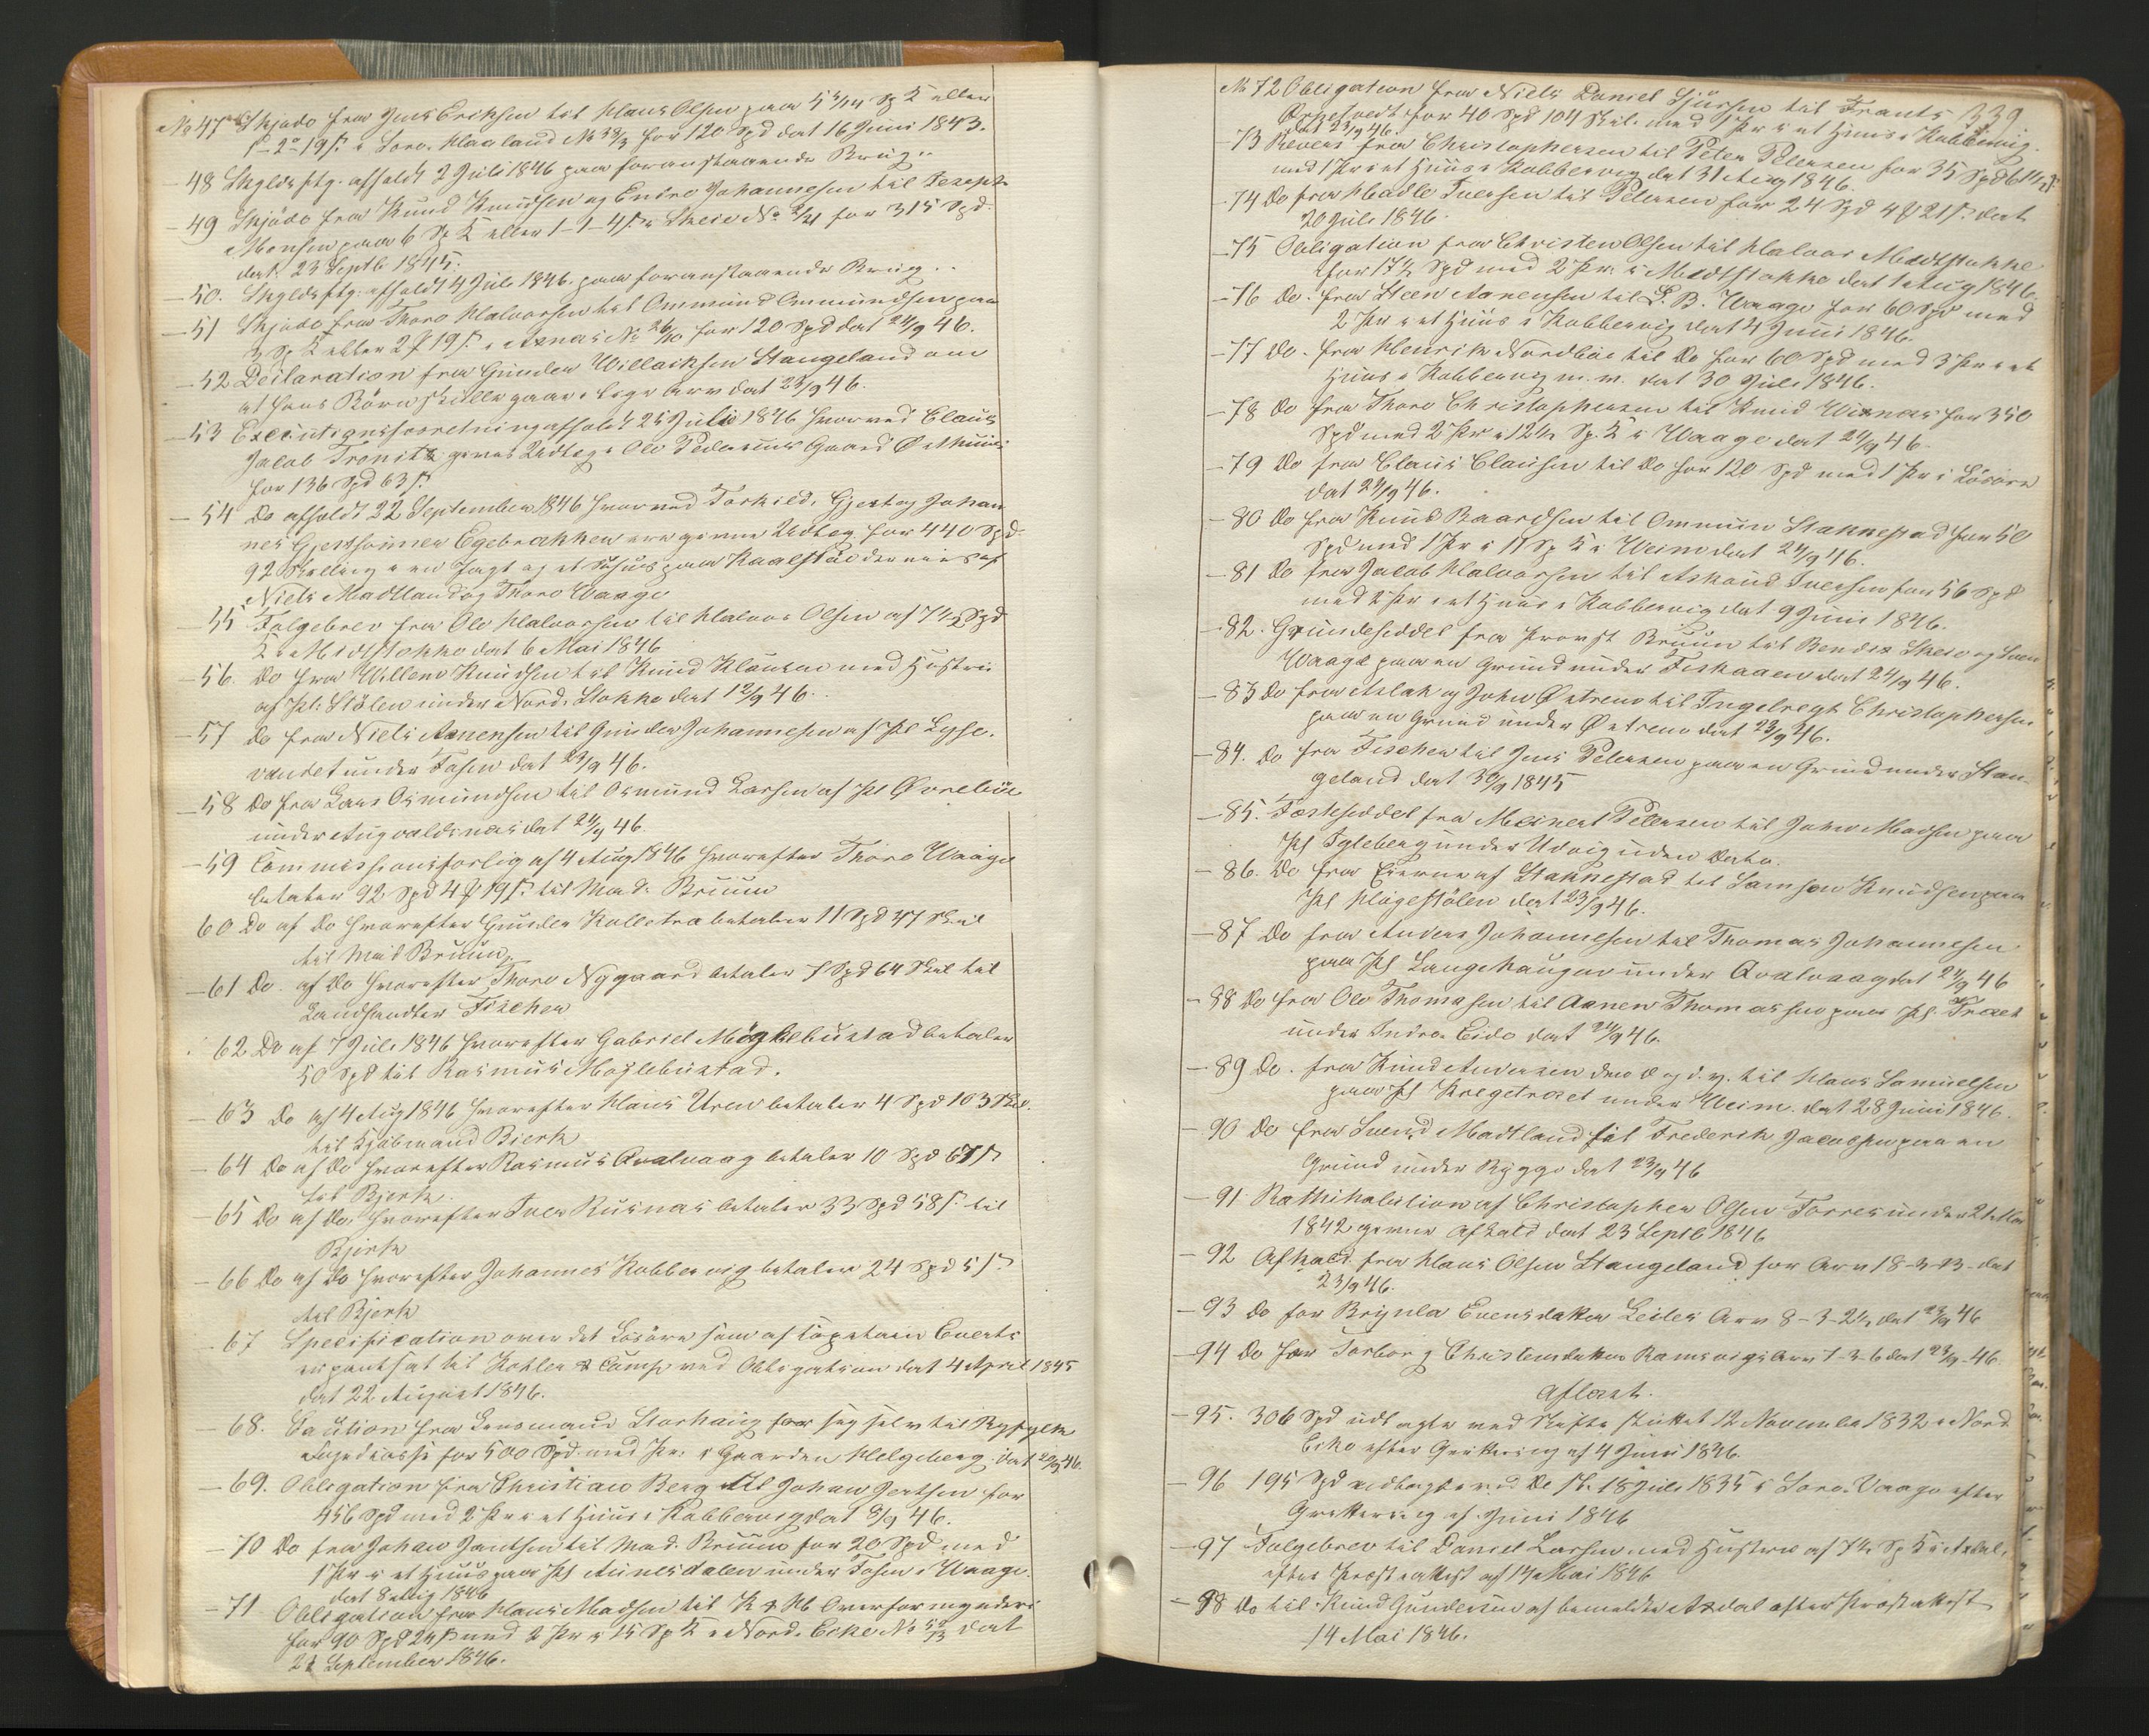 No 47 Skjøde fra Jens Eriksen til Klaus Olsen paa 5 Sp K eller
i Søre Haaland No 33/3 for 120 Spd dat 16 Juni 1843.
48 Skyldsftg. afholdt 2 Juli 1846 paa foranstaaende Brug..
49 Skjøde fra Knud Knudsen og Endre Johannesen til Joseph
Monsen paa 6 Sp K eller 1-1-4 ß i Skeie No for 315 Spd.
dat. 23 Septb 1845.
50. Skyldsftg. afholdt 4 Juli 1846. paa foranstaaende Brug..
51 Skjøde fra Thore Halvorsen til Ommund Ommundsen paa
3 Sp K eller 2 # 19 ß i No 26/10 for 120 Spd dat 24/9 46.
52 Declaration fra Gunder Willacksen Stangeland om
at hans Børn skulle gaae i lige Arv dat 23/9 46.
53 Executionsforretning afholdt 25 Juli 1846 hvorved Claus
Jacob gives Udlæg i Ole Pedersens Gaard Østhuus
for 136 Spd 63 ß
54 Do afholdt 22 September 1846 hvorved Torkild, Gjert og Johan
nes Gjertsønner Egebrækken ere givne Udlæg for 440 Spd
92 Skilling i en Jagt og et Søhuus paa
Niels Madland og Thore Waage
55 Følgebrev fra Ole Halvorsen til Halvor Olsen af 7½ Spd
K i Midtstokke dat 6 Mai 1846
56. Do fra Willem Knudsen til Knud Klausen med Hustru
af Pl: Stølen under Nord. Stokke dat 12/9 46.
57 Do fra Niels Aanensen til Gunder Johannesen af Pl Lyse-
vandet under Tosen dat 23/9 46.
58 Do fra Lars Osmundsen til Osmund Larsen af Pl Øvrebøe
under Augvaldsnæs dat 24/9 46.
59 Commissionsforlig af 4 Aug 1846 hvorefter Thore Waage
betaler 92 Spd 4 # 19 ß til Mad. Bruun
60 Do af Do hvorefter Gunder Kolletva betaler 11 Spd 47 Skil
til Mad Bruun.
61 Do. af Do hvorefter Thore Nygaard betaler 7 Spd 64 Skil til
Landhandler Fischer
62 Do af 7 Juli 1846 hvorefter Gabriel Møglebustad betaler
50 Spd til Rasmus Møglebustad.
63 Do af 4 Aug 1846 hvorefter Hans Uren betaler 4 Spd 103 Skil.
til Kjøbmand Bjerk
64 Do af Do hvorefter Rasmus Qvalvaag betaler 10 Spd 67 ß
til Bjerk.
65 Do af Do. hvorefter Iver Rusnæs betaler 33 Spd 58 ß til
Bjerk
66 Do af Do hvorefter Johannes Kobbervig betaler 24 Spd 5 ß
til Bjerk
67 Specification over det Løsøre som af Capetain Everts
er pantsat til Køhler & Comp ved Obligation dat 4 April 1845
dat 22 August 1846.
68. Caution fra Lensmand Storhaug for sig selv til Ryfylke
Fogedcasse for 500 Spd. med Pr. i Gaarden Helgeberg. dat 22/9 46.
69. Obligation fra Christian Berg til Johan Jertsen for
456 Spd med 2 Pr i et Huus i Kobbervig dat 8/9 46.
70 Do fra Johan Jentsen til Mad. Bruun for 20 Spd med
1 Pr i et Huus paa Pl Aunesdalen under Tosen i Waage.
dat 8 Aug 1846
71 Obligation fra Hans Madsen til K & Ms Overformynderi
for 90 Spd 24 ß med 2 Pr i 15 Sp K i Nord. Eike No dat
21 September 1846.
339
No 72 Obligation fra Niels Daniel Sjursen til Frants
for 40 Spd 104 Skil. med 1 Pr i et Huus i Kobbervig.
dat 23/9 46.
73 Revers fra Christophersen til Peter Petersen for 35 Spd
med 1 Pr i et Huus i Kobbervig dat 31 Aug 1846.
74 Do fra Madle Iversen til Petersen for 24 Spd 4 # 21 ß. dat
20 Juli 1846.
75 Obligation fra Christen Olsen til Halvor Midtstokke
for 17½ Spd med 2 Pr. i Midtstokke dat 1 Aug 1846.
76 Do. fra Steen Aanensen til L. B. Waage for 60 Spd med
2 Pr i et Huus i Kobbervig dat 4 Juni 1846.
77 Do. fra Henrik Nordbøe til Do for 60 Spd med 3 Pr i et
Huus i Kobbervig m. v. dat 30 Juli 1846.
78 Do fra Thore Christophersen til Knud Wisnæs for 350
Spd med 2 Pr i 12½ Sp. K i Waage dat 24/9 46.
79 Do fra Claus Clausen til Do for 120 Spd med 1 Pr i Løsøre
dat 24/9 46.
80 Do fra Knud Baardsen til Ommun Stannestad for 50
Spd med 1 Pr i 11 Sp K i Weim dat 24/9 46.
81 Do fra Jacob Halvorsen til Askoud Iversen for 56 Spd
med 2 Pr i et Huus i Kobbervig dat 9 Juni 1846.
82. Grundeseddel fra Provst Bruun til Bendix Skeie og Sven
Waage paa en Grund under Fiskaaen dat 24/9 46.
83 Do fra Aslak og John Østreno til Ingelregt Christophersen
paa en Grund under Østreno dat 23/9 46.
84. Do fra Fischer til Jens Petersen paa en Grund under Stan-
geland dat 30/9 1845
85. Fæsteseddel fra Meinert Petersen til John Madsen paa
Pl Igleberg under Udvig uden Dato.
86. Do fra Eierne af Stannestad til Samson Knudsen paa
Pl Høgestølen dat 23/9 46.
87 Do fra Anders Johannesen til Thomas Johannesen
paa Pl Langehaugen under Qvalvaag dat 24/9 46
88 Do fra Ole Thomasen til Aanen Thomassen paa Pl Træet
under Indre Eide dat 24/9 46.
89 Do. fra Knud Andersen den æ og d. y. til Hans Samuelsen
paa Pl Kregetræet under Weim. dat 28 Juni 1846.
90 Do fra Svend Madtland til Frederik Jacobsen paa en
Grund under Rygge dat 23/9 46
91 Rathihabition af Christopher Olsen Torres under
1842 givne Afkald dat 23 Septb 1846
92 Afkald fra Hans Olsen Stangeland for Arv 18-3-13- dat
23/9 46.
93 Do for Brynla Evensdatter Leiles Arv 8-3-2½ dat 23/9 46
94 Do for Torborg Christensdatter Ramsvigs Arv 1-3-6 dat 23/9 46.
Aflæst.
95. 306 Spd udlagte ved Skifte sluttet 12 November 1832 i Nord
Eike efter Qvittering af 4 Juni 1846.
96 195 Spd udlagte ved Do Sl. 18 Juli 1835 i Søre Vaage efter
Qvittering af Juni 1846
97 Følgebrev til Daniel Larsen med Hustru af 7½ Sp K i Aadal.
efter Provstattest af 14 Mai 1846
98 Do til Knud Gundersen af bemeldte Aadal efter Provstattest
14 Mai 1846.